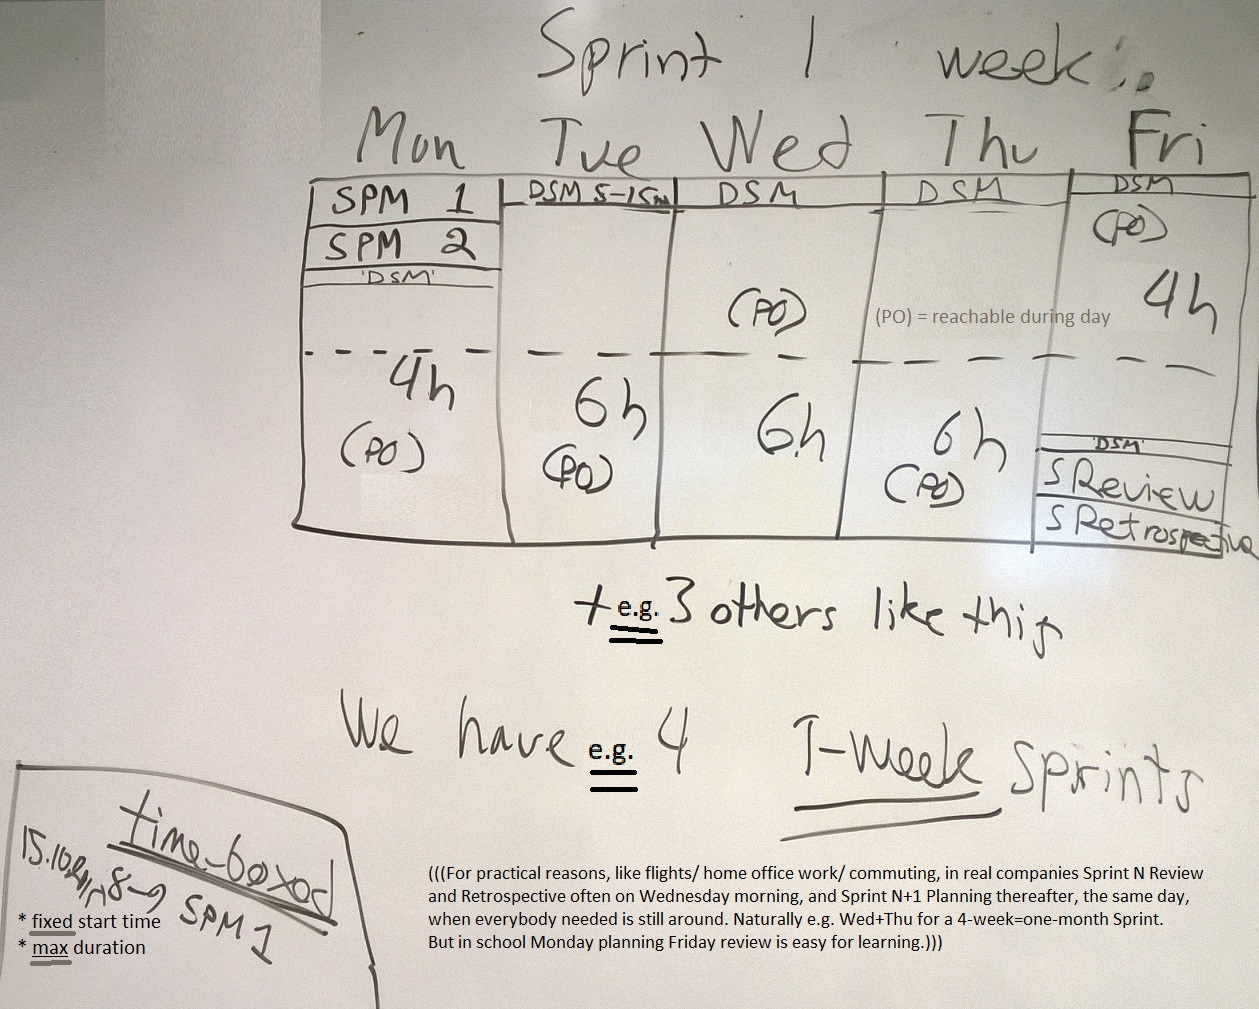 Sprint 1 week
Mon Tue Wed Thu Fri
SPM 1
SPM 2
'DSM'
4h
(PO)
DSM 5-15m
6h
(PO)
DSM
(PO)
6h
DSM
(PO) = reachable during day
6h
(PO)
DSM
(PO)
4h
'DSM'
S Review
S Retrospective
+ e.g. 3 others like this
We have e.g. 4 1-week sprints
time-boxed
SPM 1
* fixed start time
* max duration
(((For practical reasons, like flights/ home office work/ commuting, in real companies Sprint N Review
and Retrospective often on Wednesday morning, and Sprint N+1 Planning thereafter, the same day,
when everybody needed is still around. Naturally e.g. Wed+Thu for a 4-week=one-month Sprint.
But in school Monday planning Friday review is easy for learning.)))